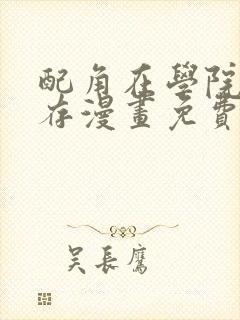 配角在學院
存漫畫免費
吳長鷹